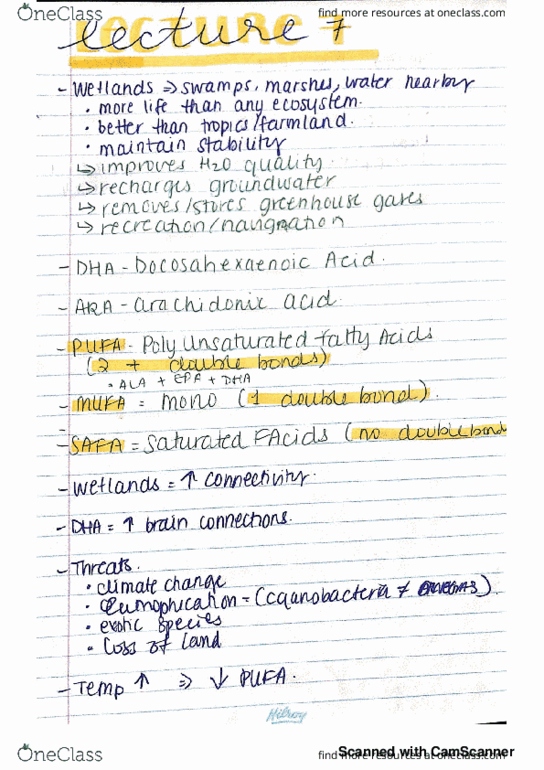 OneClass
find more resources at oneclass.com
lecture 7
- Wetlands => swamps, marshes, water nearby
• more life than any ecosystem.
• better than tropics/farmland.
• maintain stability
↳ improves H2O quality.
↳ recharges groundwater
↳ removes/stores greenhouse gases
↳ recreation/navigation
- DHA - Docosahexaenoic Acid.
- ARA - arachidonic acid.
- PUFA - Poly Unsaturated fatty Acids
(2 + double bonds)
• ALA + EPA + DHA
- MUFA = mono (1 double bond).
-
- SAFA = saturated FAcids (no double bond
- Wetlands = ↑ connectivity.
- DHA = ↑ brain connections.
- Threats.
• climate change
• = (cyanobacteria ≠ )
• exotic species
• Loss of land
- Temp ↑ => ↓ PUFA.
Hilroy
OneClass
find more resources at oneclass.com
Scanned with CamScanner